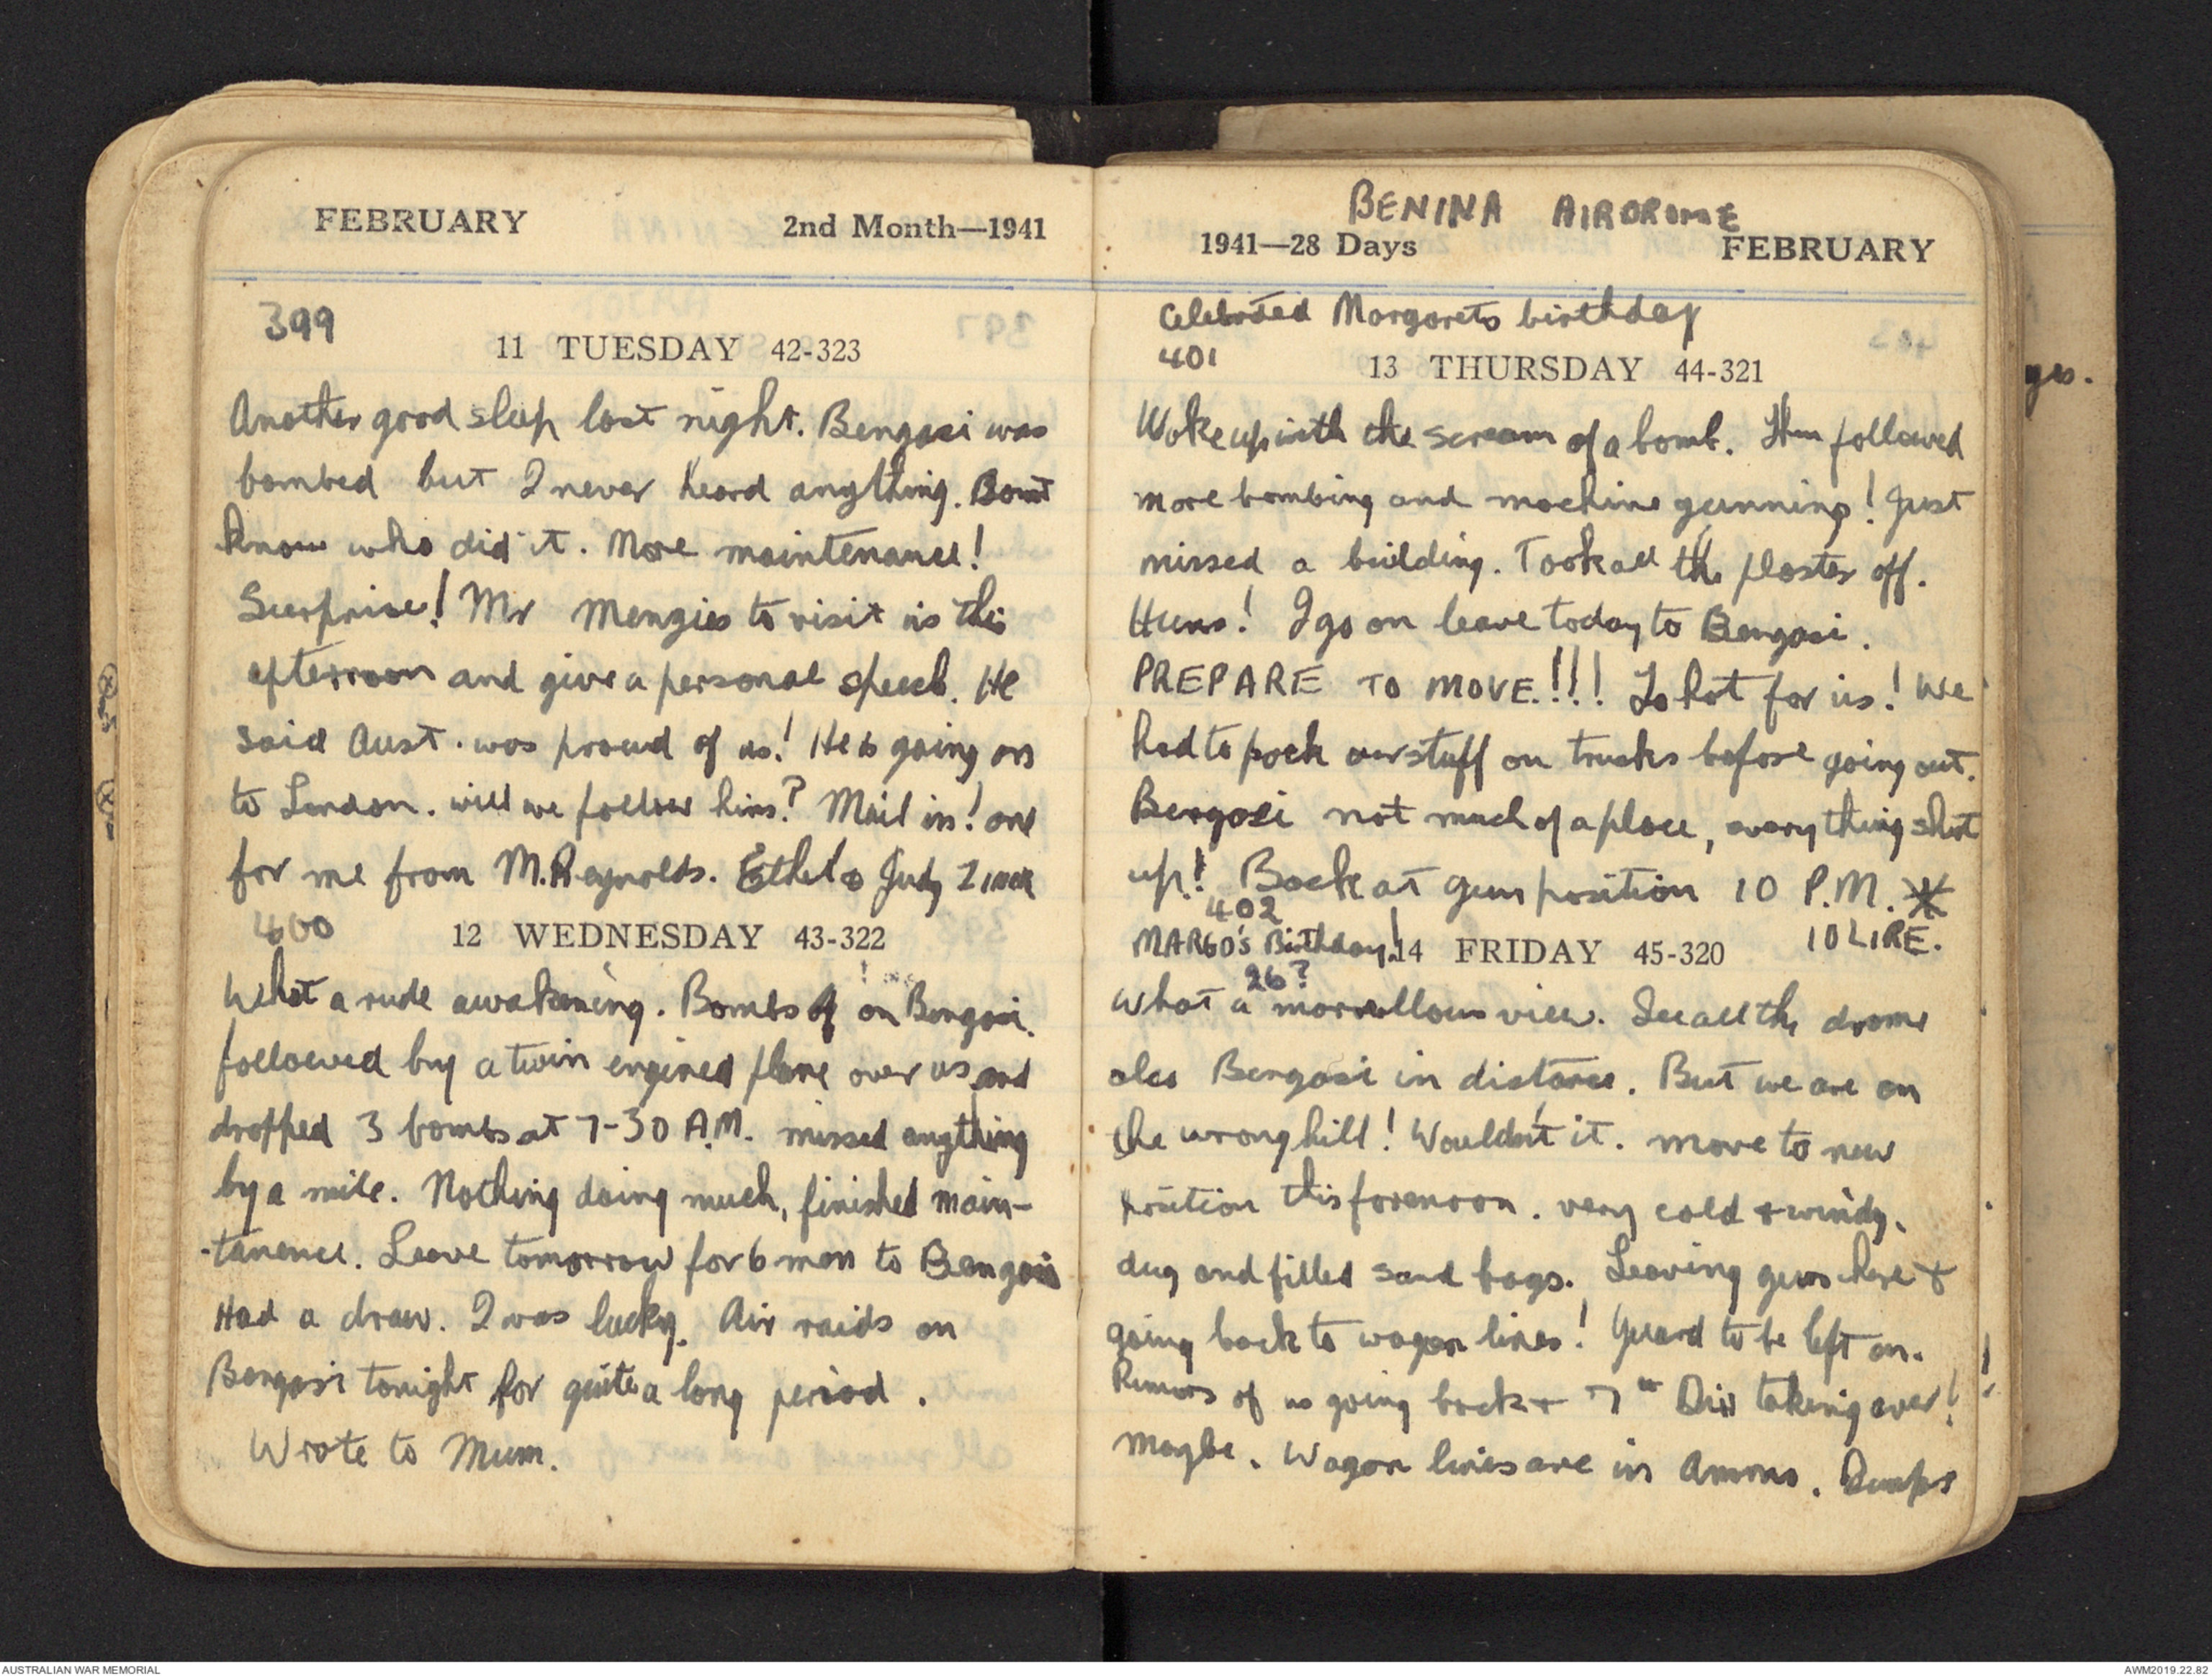 FEBRUARY 2nd Month—1941
399
11 TUESDAY 42-323
Another good sleep last night. Bengasi was
bombed but I never heard anything. Dont
know who did it. More maintenance!
Surprise! Mr Menzies to visit us this
afternoon and give a personal speech. He
said Aust. was proud of us! He is going on
to London. will we follow him? Mail in! one
for me from M.Reynolds. Ethel & Judy 1 each
400
12 WEDNESDAY 43-322
What a rude awakening. Bombs on Bengasi.
followed by a twin engined plane over us and
dropped 3 bombs at 7-30 A.M. missed anything
by a mile. Nothing doing much, finished main-
-tanence. Leave tomorrow for 6 men to Bengasi
Had a draw. I was lucky. Air raids on
Bengasi tonight for quite a long period.
Wrote to Mum.
BENINA AIRDROME
1941—28 Days FEBRUARY
Celebrated Margarets birthday
401
13 THURSDAY 44-321
Woke up with the scream of a bomb. Then followed
more bombing and machine gunning! Just
missed a building. Took all the plaster off.
Huns! I go on leave today to Bengasi.
PREPARE TO MOVE.!!! To hot for us! We
had to pack our stuff on trucks before going out.
Bengasi not much of a place, everything shut
up! Back at gun position 10 P.M.
402
10 LIRE.
MARGO'S Birthday! 14 FRIDAY 45-320
26?
What a marvellous view. See all the drome
also Bengasi in distance. But we are on
the wrong hill! Wouldn't it. move to new
position this forenoon. very cold & windy.
dug and filled sand bags. Leaving guns here &
going back to wagon lines! Guard to be left on.
Rumors of us going back & 7th Div taking over!
Maybe. Wagon lines are in Ammo. Dumps
ges.
AUSTRALIAN WAR MEMORIAL
AWM2019.22.82